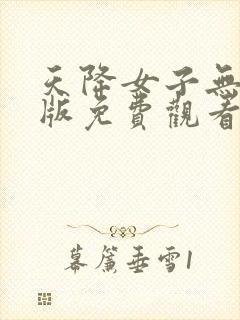 天降女子無
版免費觀看
幕簾垂雪1